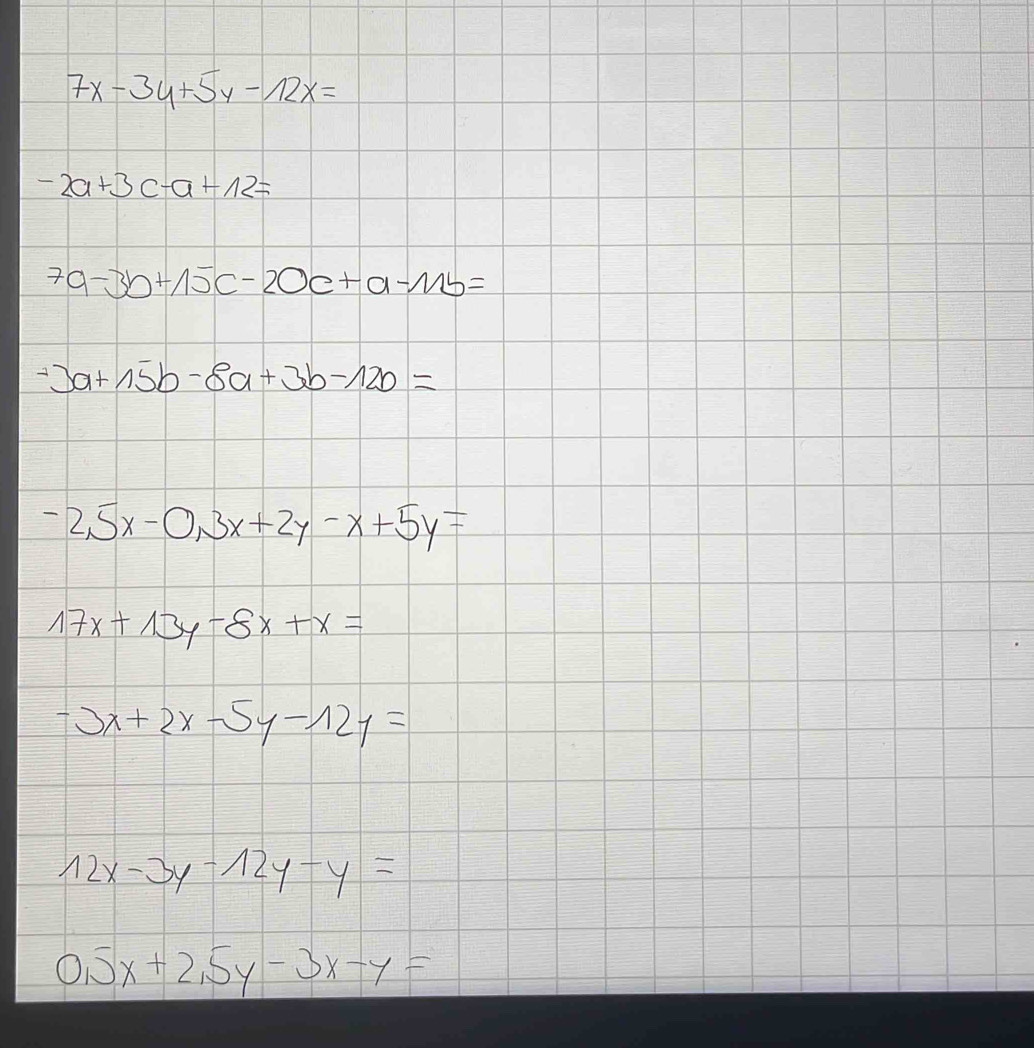 7x-3y+5y-12x=
-2a+3c-a+12=
7a-3b+15c-20c+a-11b=
-3a+15b-8a+3b-12b=
-2,5x-0,3x+2y-x+5y=
17x+13y-8x+x=
-3x+2x-5y-12y=
12x-3y-12y-y=
0,5x+2,5y-3x-y=